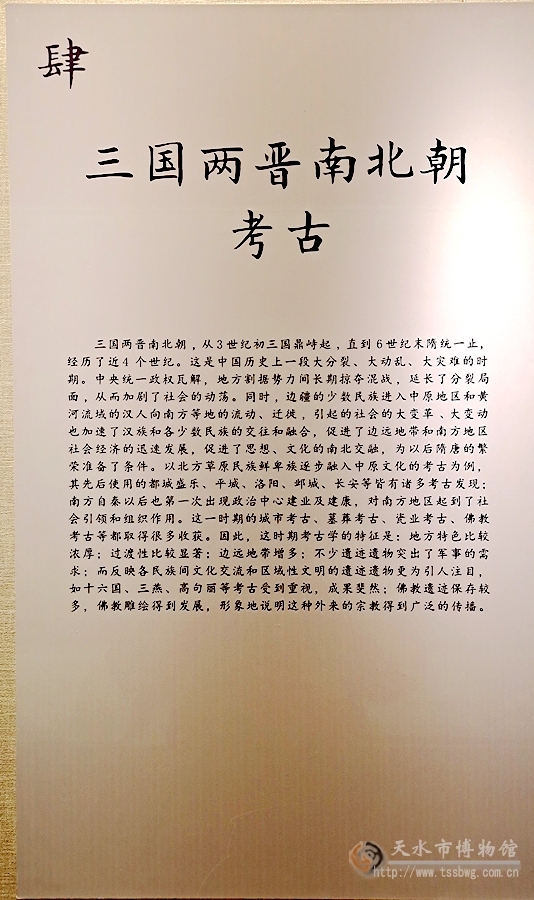 肆
三国两晋南北朝
考古
三国两晋南北朝，从3世纪初三国鼎峙起，直到6世纪末隋统一止，
经历了近4个世纪。这是中国历史上一段大分裂、大动乱、大灾难的时
期。中央统一政权瓦解，地方割据势力间长期掠夺混战，延长了分裂局
面，从而加剧了社会的动荡。同时，边疆的少数民族进入中原地区和黄
河流域的汉人向南方等地的流动、迁徙，引起的社会的大变革、大变动
也加速了汉族和各少数民族的交往和融合，促进了边远地带和南方地区
社会经济的迅速发展，促进了思想、文化的南北交融，为以后隋唐的繁
荣准备了条件。以北方草原民族鲜卑族逐步融入中原文化的考古为例，
其先后使用的都城盛乐、平城、洛阳、邺城、长安等皆有诸多考古发现；
南方自秦以后也第一次出现政治中心建业及建康，对南方地区起到了社
会引领和组织作用。这一时期的城市考古、墓葬考古、瓷业考古、佛教
考古等都取得很多收获。因此，这时期考古学的特征是：地方特色比较
浓厚；过渡性比较显著；边远地带增多；不少遗迹遗物突出了军事的需
求；而反映各民族间文化交流和区域性文明的遗迹遗物更为引人注目，
如十六国、三燕、高句丽等考古受到重视，成果斐然；佛教遗迹保存较
多，佛教雕绘得到发展，形象地说明这种外来的宗教得到广泛的传播。
天水市博物馆
http://www.tssbwg.com.cn